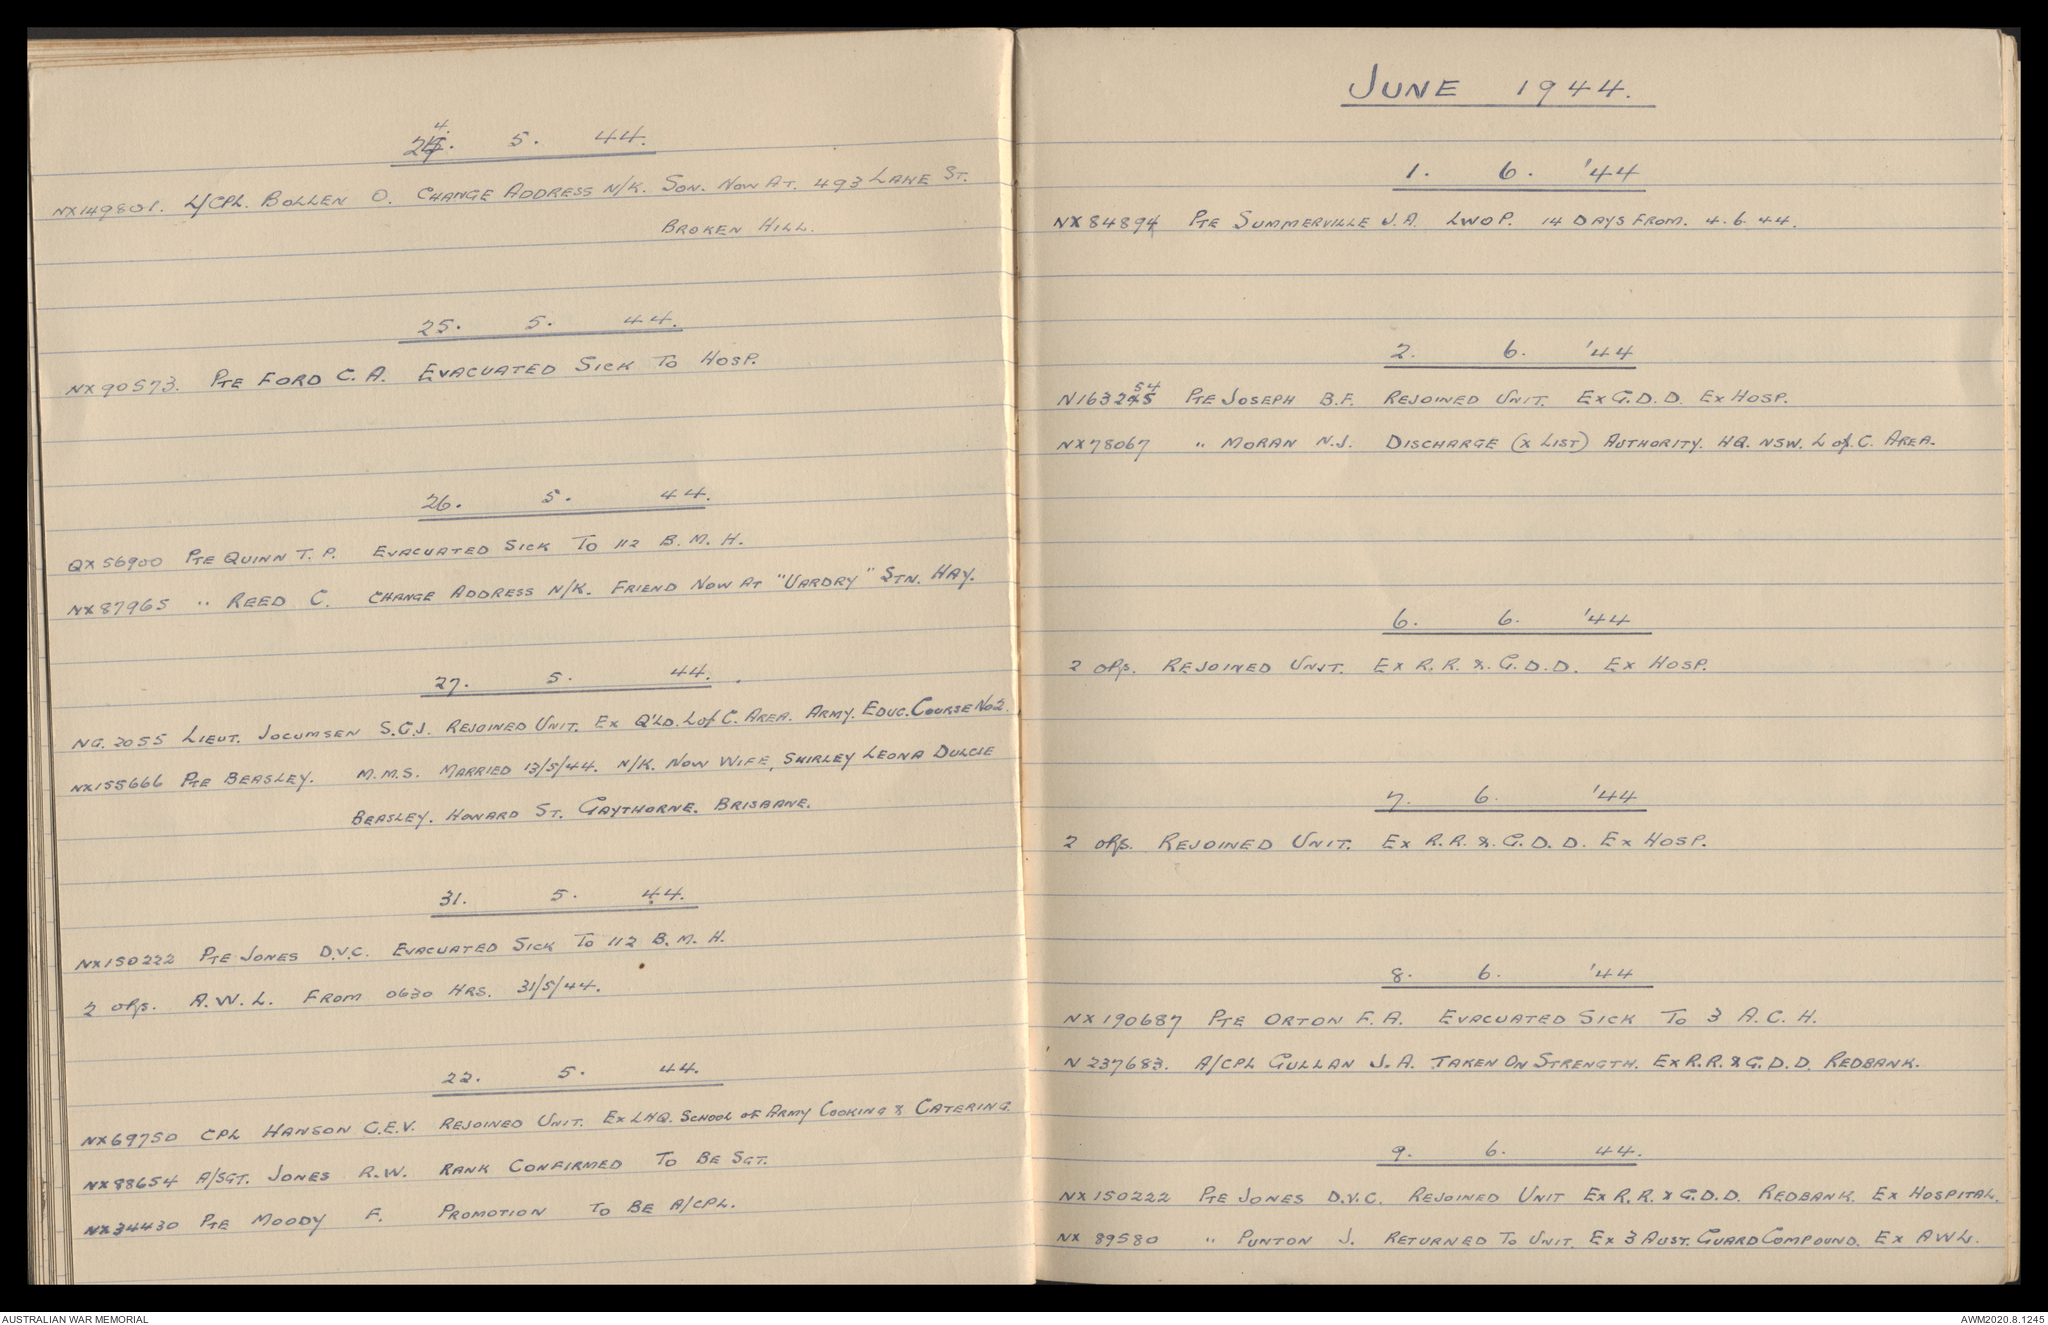 24. 5. 44.
NX149801. L/CPL. BOLLEN O. CHANGE ADDRESS N/K. SON. NOW AT. 493 LANE ST.
BROKEN HILL.
25. 5. 44.
NX90573. PTE FORD C. A. EVACUATED SICK TO HOSP.
26. 5. 44.
QX56900 PTE QUINN T. P. EVACUATED SICK TO 112 B. M. H.
NX87965 " REED C. CHANGE ADDRESS N/K. FRIEND NOW AT "UARDRY" STN. HAY.
27. 5. 44.
NG. 2055 LIEUT. JOCUMSEN S.G.J. REJOINED UNIT. EX Q'LD. L of C. AREA. ARMY. EDUC. COURSE No2.
NX155666 PTE BEASLEY. M.M.S. MARRIED 13/5/44. N/K. NOW WIFE, SHIRLEY LEONA DULCIE
BEASLEY. HOWARD ST. GAYTHORNE. BRISBANE.
31. 5. 44.
NX150222 PTE JONES D.V.C. EVACUATED SICK TO 112 B. M. H.
2 ORs. A. W. L. FROM 0630 HRS. 31/5/44.
22. 5. 44.
NX69750 CPL HANSON C.E.V. REJOINED UNIT. EX LHQ. SCHOOL OF ARMY COOKING & CATERING.
NX88654 A/SGT. JONES R.W. RANK CONFIRMED TO BE SGT.
NX34430 PTE MOODY F. PROMOTION TO BE A/CPL.
JUNE 1944.
1. 6. '44
NX84894 PTE SUMMERVILLE J.A. LWOP. 14 DAYS FROM. 4. 6. 44.
2. 6. '44
N163254 PTE JOSEPH B.F. REJOINED UNIT. EX G. D. D. EX HOSP.
NX78067 " MORAN N.J. DISCHARGE (X LIST) AUTHORITY. HQ. NSW. L of. C. AREA.
6. 6. '44
2 ORs. REJOINED UNIT. EX R. R. &. G. D. D. EX HOSP.
7. 6. '44
2 ORs. REJOINED UNIT. EX R. R. &. G. D. D. EX HOSP.
8. 6. '44
NX190687 PTE ORTON F. A. EVACUATED SICK TO 3 A. C. H.
N237683. A/CPL GULLAN J. A. TAKEN ON STRENGTH. EX R. R. & G. D. D. REDBANK.
9. 6. 44.
NX150222 PTE JONES D.V.C. REJOINED UNIT EX R. R. & G. D. D. REDBANK. EX HOSPITAL.
NX 89580 " PUNTON J. RETURNED TO UNIT. EX 3 AUST. GUARD COMPOUND. EX AWL.
AUSTRALIAN WAR MEMORIAL
AWM2020.8.1245